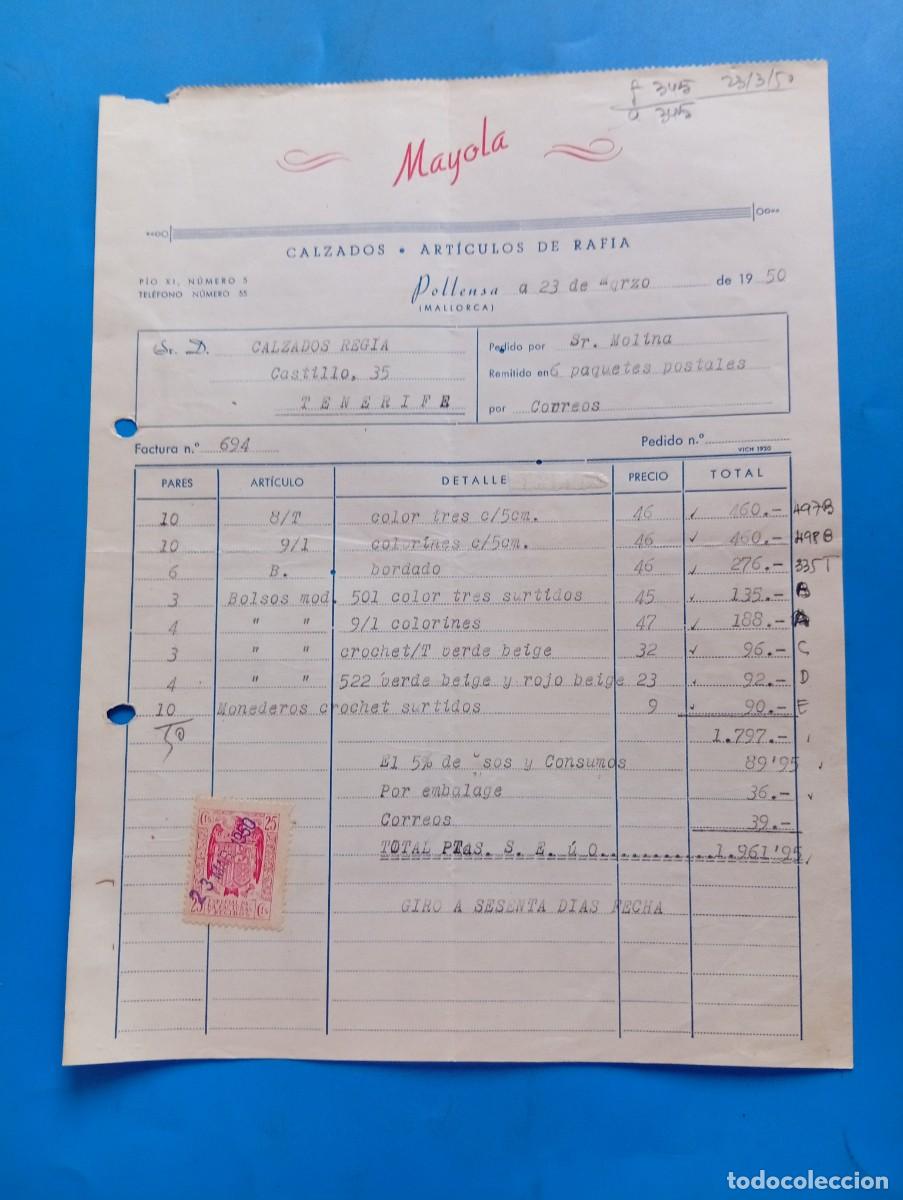 f 345 23/3/50
a 345
Mayola
CALZADOS • ARTÍCULOS DE RAFIA
PÍO XI, NÚMERO 5
TELÉFONO NÚMERO 55
Pollensa a 23 de Marzo de 19 50
(MALLORCA)
Sr. D. CALZADOS REGIA
Castillo, 35
TENERIFE
Pedido por Sr. Molina
Remitido en 6 paquetes postales
por Correos
Factura n.º 694
Pedido n.º
VICH 1950
PARES ARTÍCULO DETALLE PRECIO TOTAL
10 8/T color tres c/5cm. 46 460.- 497B
10 9/1 colorines c/5cm. 46 460.- 498B
6 B. bordado 46 276.- 335T
3 Bolsos mod. 501 color tres surtidos 45 135.- B
4 " " 9/1 colorines 47 188.- A
3 " " crochet/T verde beige 32 96.- C
4 " " 522 verde beige y rojo beige 23 92.- D
10 Monederos crochet surtidos 9 90.- E
50 1.797.-
El 5% de Usos y Consumos 89'95
Por embalage 36.-
Correos 39.-
TOTAL Ptas. S. E. ú O.......... 1.961'95
GIRO A SESENTA DIAS FECHA
Cts 25
23 MAR 1950
25 Cts
todocoleccion